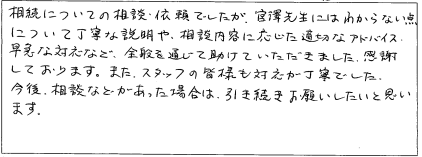 相続についての相談・依頼でしたが、宮澤先生にはわからない点
について丁寧な説明や、相談内容に応じた適切なアドバイス、
早急な対応など、全般を通じて助けていただきました。感謝
しております。また、スタッフの皆様も対応が丁寧でした。
今後、相談などがあった場合は、引き続きお願いしたいと思い
ます。